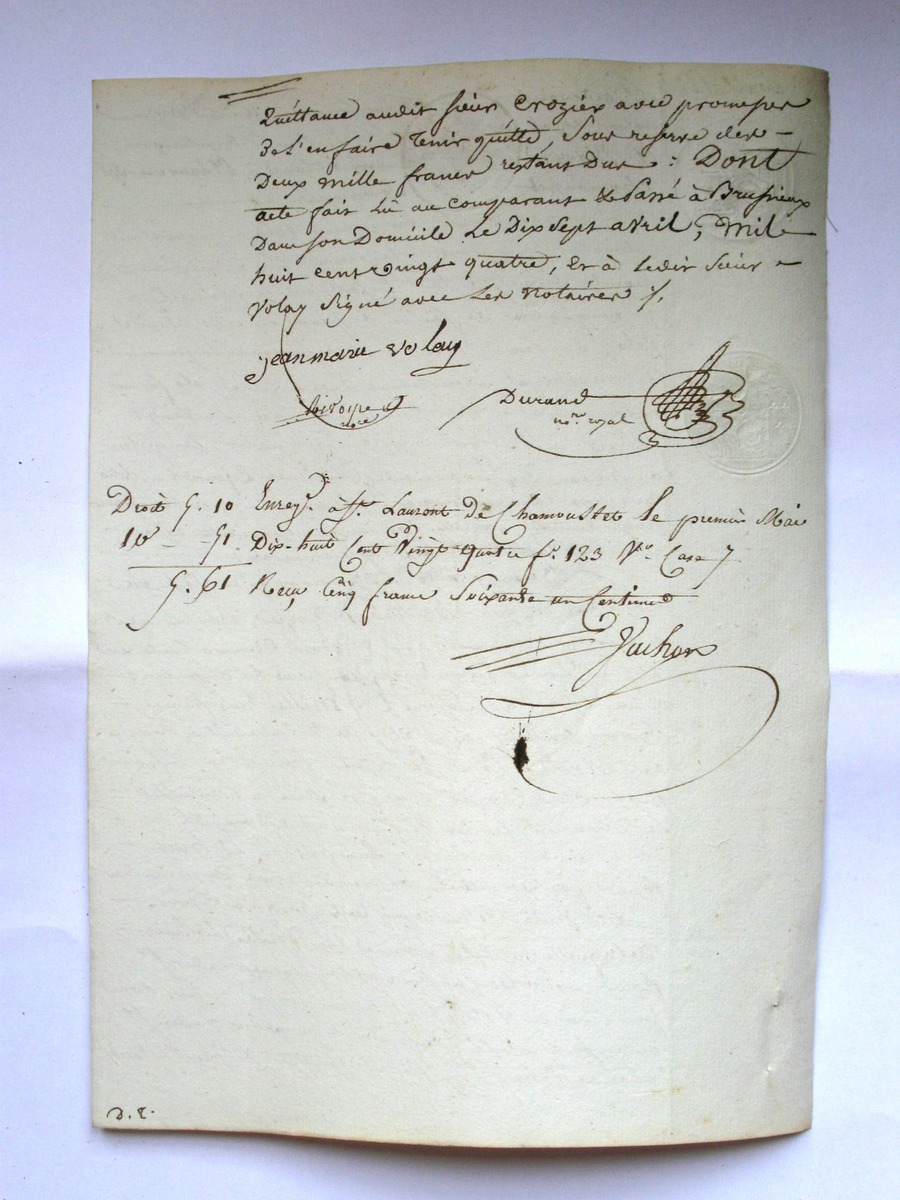 Quittance audit sieur Crozier avec promesses
De l'en faire tenir quitte, sous reserve des -
Deux mille francs restant Dus : Dont
acte fait Lu au comparant & Passé à Brussieux
Dans son Domicile Le Dix Sept avril, Mil
huit cent vingt quatre, Et à Ledit sieur -
Volay Signé avec Les Notaires ./.
jeanmarie volay
Durand
nore royal
Droit 5. 10 Enregé à St. Laurent de Chamousset le premier Mai
10e - 51 Dix-huit Cent Vingt quatre fo. 123 Vo. Case 7
5. 61 Reçu Cinq francs Soixante un Centimes
Vachon
D. E.